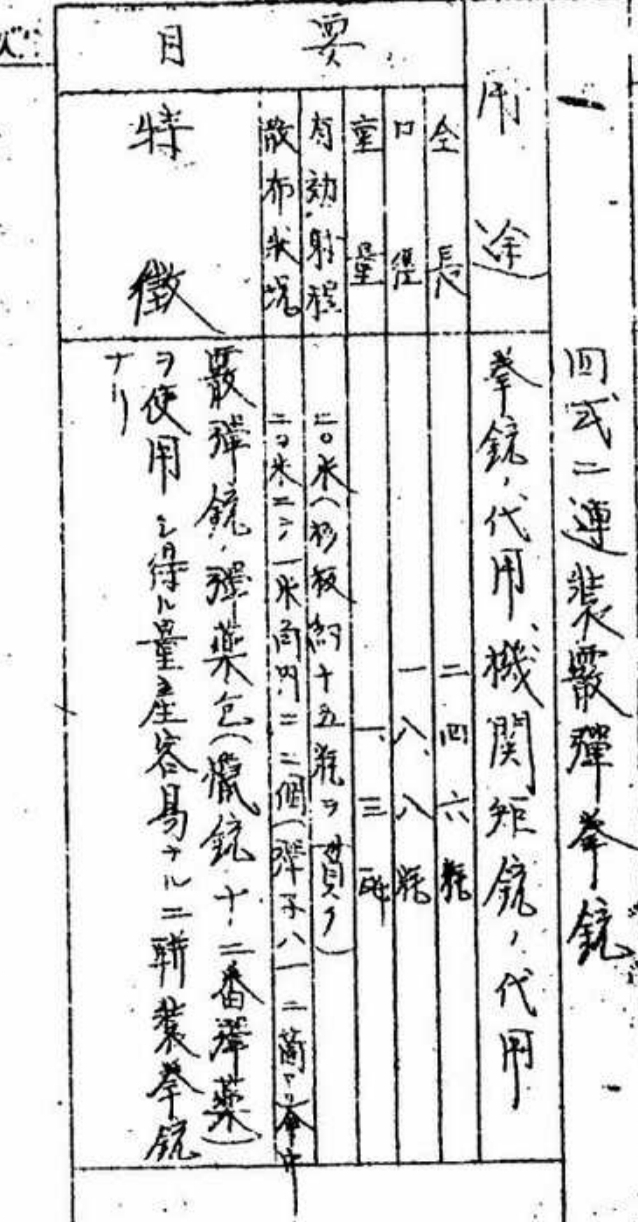 一
四式二連装霰彈拳銃
用途
拳銃ノ代用、機関短銃ノ代用
要目
全長
二四六粍
口徑
一八、八粍
重量
一、三瓩
有効射程
二〇米(杉板約十五粍ヲ貫ク)
散布状況
二〇米ニテ一米向内ニ二個(彈子八一二箇アリ命中
特徴
霰彈銃ノ彈薬包(猟銃十二番彈薬)
ヲ使用シ得ル量産容易ナル二聯装拳銃
ナリ